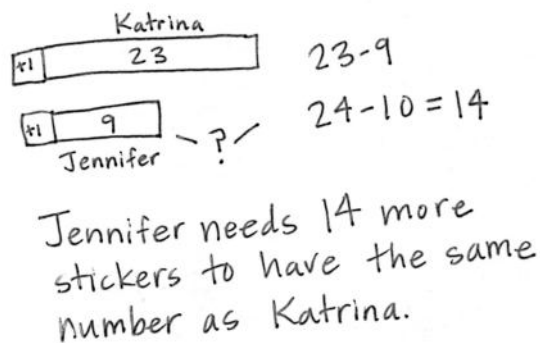 Katrina
+1 23
23-9
+1 9
24-10=14
?
Jennifer
Jennifer needs 14 more
stickers to have the same
number as Katrina.